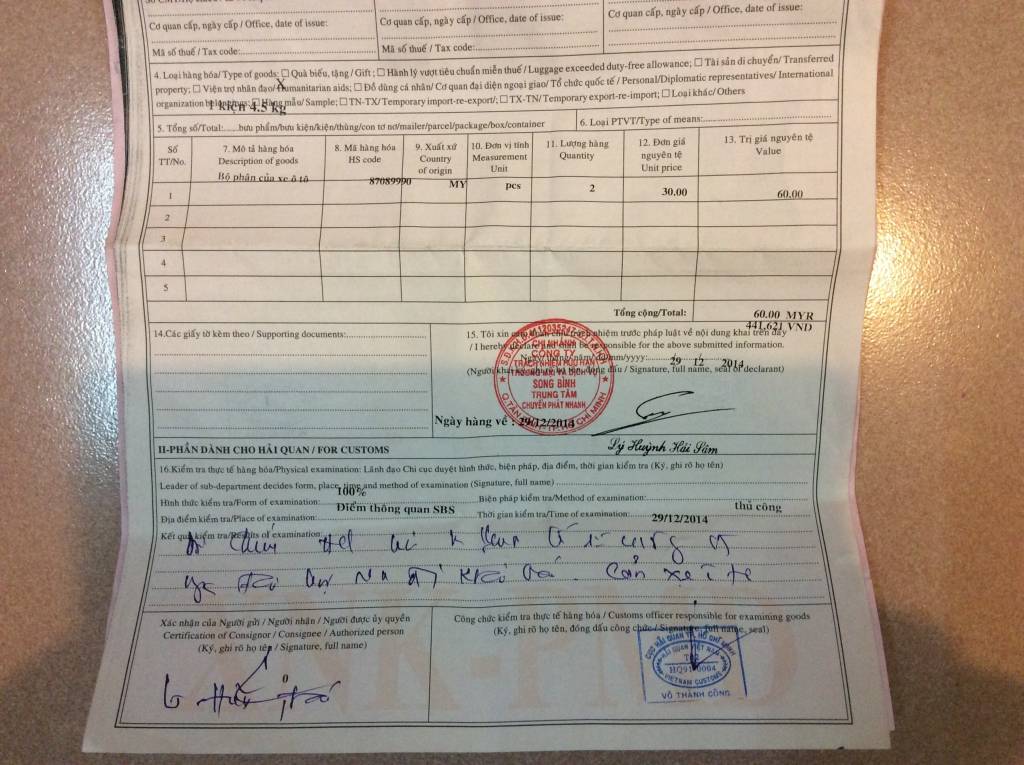 Cơ quan cấp, ngày cấp / Office, date of issue:
Mã số thuế / Tax code:
Cơ quan cấp, ngày cấp / Office, date of issue:
Mã số thuế / Tax code:
Cơ quan cấp, ngày cấp / Office, date of issue:
4. Loại hàng hóa/ Type of goods: ☐ Quà biếu, tặng / Gift ; ☐ Hành lý vượt tiêu chuẩn miễn thuế / Luggage exceeded duty-free allowance; ☐ Tài sản di chuyển/ Transferred
property; ☐ Viện trợ nhân đạo/ Humanitarian aids; ☐ Đồ dùng cá nhân/ Cơ quan đại diện ngoại giao/ Tổ chức quốc tế / Personal/Diplomatic representatives/ International
X
organization belongings; ☐ Hàng mẫu/ Sample; ☐ TN-TX/ Temporary import-re-export/; ☐ TX-TN/ Temporary export-re-import; ☐ Loại khác/ Others
1 kiện 4.5 kg
5. Tổng số/Total:......bưu phẩm/bưu kiện/kiện/thùng/con tơ nơ/mailer/parcel/package/box/container
6. Loại PTVT/Type of means:
Số TT/No.
7. Mô tả hàng hóa
Description of goods
8. Mã hàng hóa
HS code
9. Xuất xứ
Country
of origin
10. Đơn vị tính
Measurement
Unit
11. Lượng hàng
Quantity
12. Đơn giá
nguyên tệ
Unit price
13. Trị giá nguyên tệ
Value
1 Bộ phận của xe ô tô 87089990 MY pcs 2 30.00 60.00
2
3
4
5
Tổng cộng/Total: 60.00 MYR
441,621 VND
14.Các giấy tờ kèm theo / Supporting documents:
15. Tôi xin cam đoan chịu trách nhiệm trước pháp luật về nội dung khai trên đây
/ I hereby declare and shall be responsible for the above submitted information.
Ngày/tháng/năm/ dd/mm/yyyy: 29 12 2014
/ Signature, full name, seal of declarant)
CHI NHÁNH
CÔNG TY
TRÁCH NHIỆM HỮU HẠN
THƯƠNG MẠI VÀ DỊCH VỤ
SONG BÌNH
TRUNG TÂM
CHUYỂN PHÁT NHANH
Ngày hàng về : 29/12/2014
Lý Huỳnh Hải Sâm
II-PHẦN DÀNH CHO HẢI QUAN / FOR CUSTOMS
16.Kiểm tra thực tế hàng hóa/Physical examination: Lãnh đạo Chi cục duyệt hình thức, biện pháp, địa điểm, thời gian kiểm tra (Ký, ghi rõ họ tên)
Leader of sub-department decides form, place, time and method of examination (Signature, full name)
Hình thức kiểm tra/Form of examination: 100%
Biện pháp kiểm tra/Method of examination: thủ công
Địa điểm kiểm tra/Place of examination: Điểm thông quan SBS
Thời gian kiểm tra/Time of examination: 29/12/2014
Kết quả kiểm tra/Results of examination:
Xác nhận của Người gửi / Người nhận / Người được ủy quyền
Certification of Consignor / Consignee / Authorized person
(Ký, ghi rõ họ tên / Signature, full name)
Công chức kiểm tra thực tế hàng hóa / Customs officer responsible for examining goods
(Ký, ghi rõ họ tên, đóng dấu công chức / Signature, full name, seal)
CỤC HẢI QUAN TP. HỒ CHÍ MINH
HẢI QUAN VIỆT NAM
VIETNAM CUSTOMS
VÕ THÀNH CÔNG